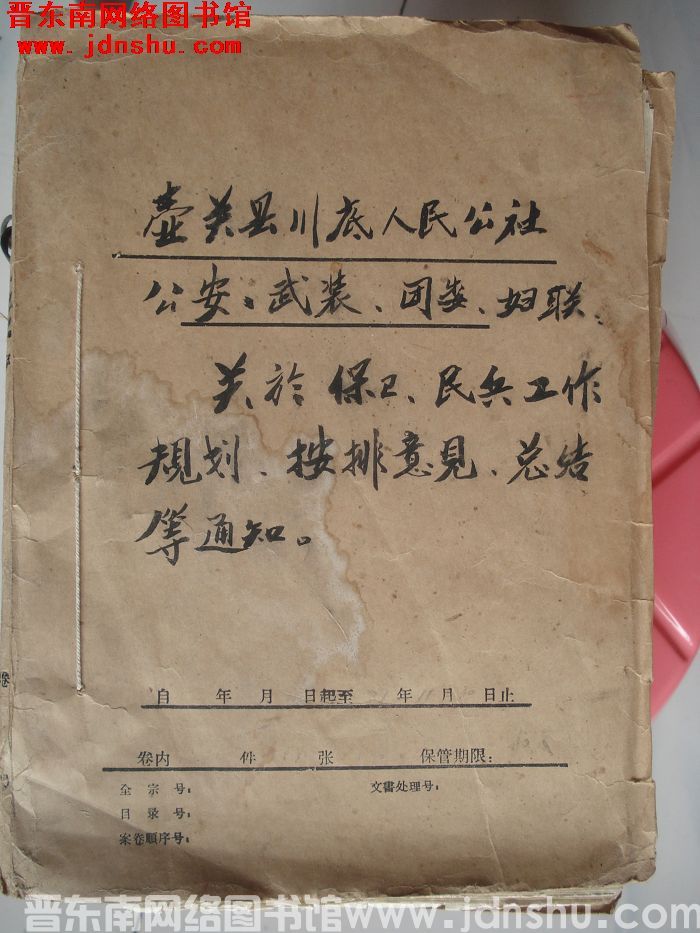 晋东南网络图书馆
www.jdnshu.com
壶关县川底人民公社
公安、武装、团委、妇联、
关於保卫、民兵工作
规划、按排意见、总结
等通知。
自 年 月 日起至 年 月 日止
卷内 件 张 保管期限：
全宗号： 文書处理号：
目录号：
案卷順序号：
晋东南网络图书馆www.jdnshu.com